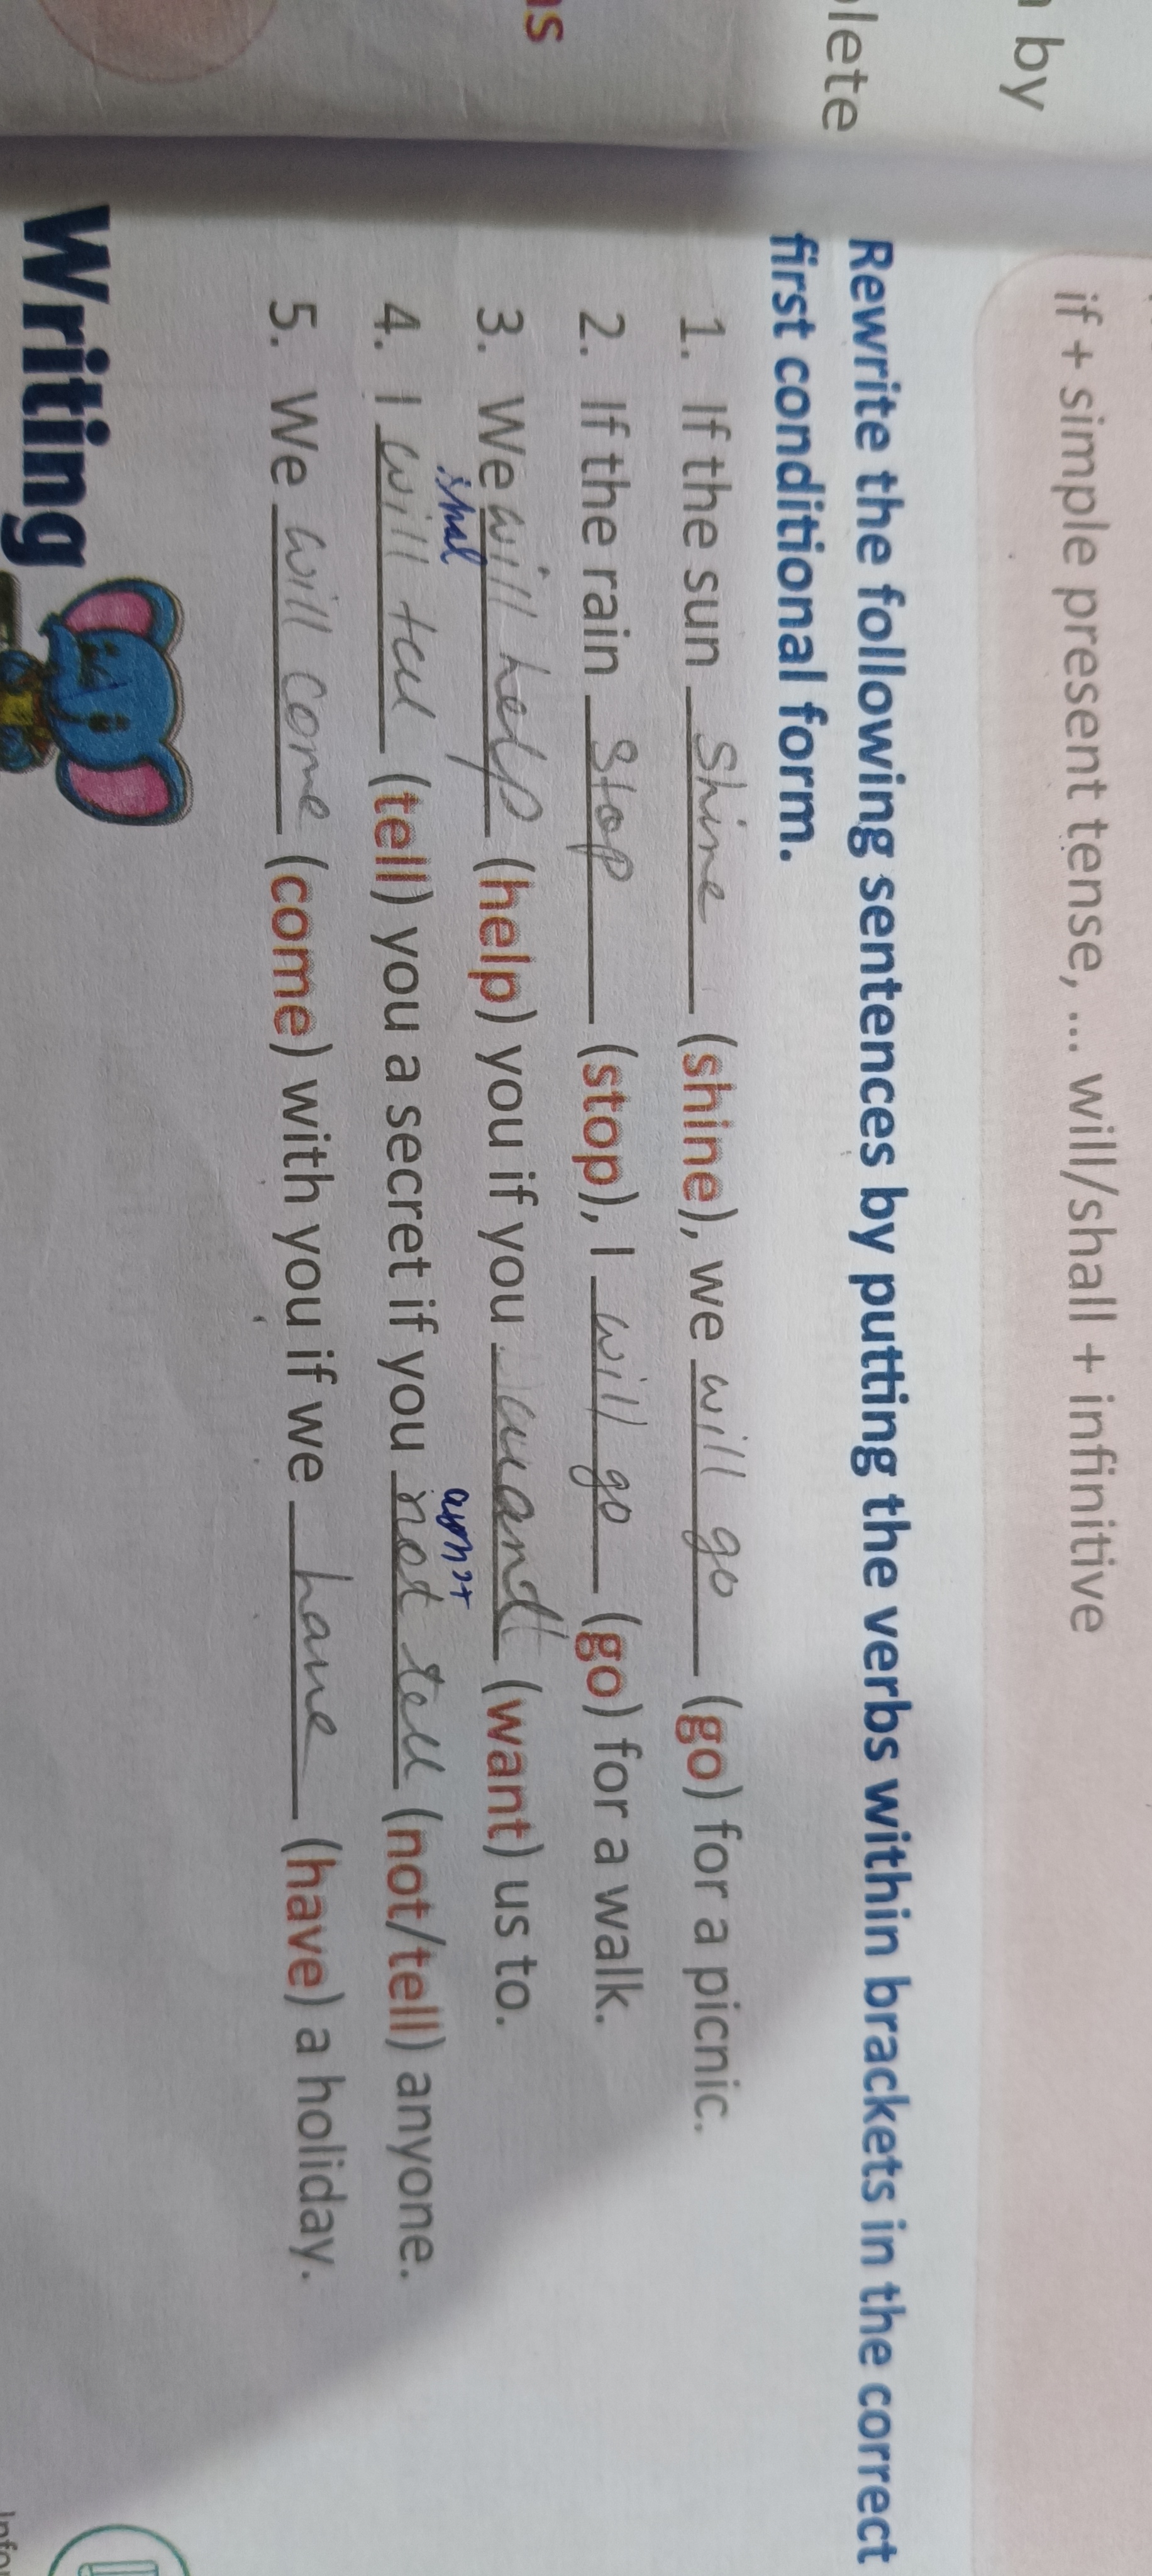 by
lete
s
if + simple present tense, ... will/shall + infinitive
Rewrite the following sentences by putting the verbs within brackets in the correct
first conditional form.
1. If the sun shine (shine), we will go (go) for a picnic.
2. If the rain stop (stop), I will go (go) for a walk.
3. We will help (help) you if you want (want) us to.
shal
4. I will tell (tell) you a secret if you not tell (not/tell) anyone.
5. We will come (come) with you if we have (have) a holiday.
Writing